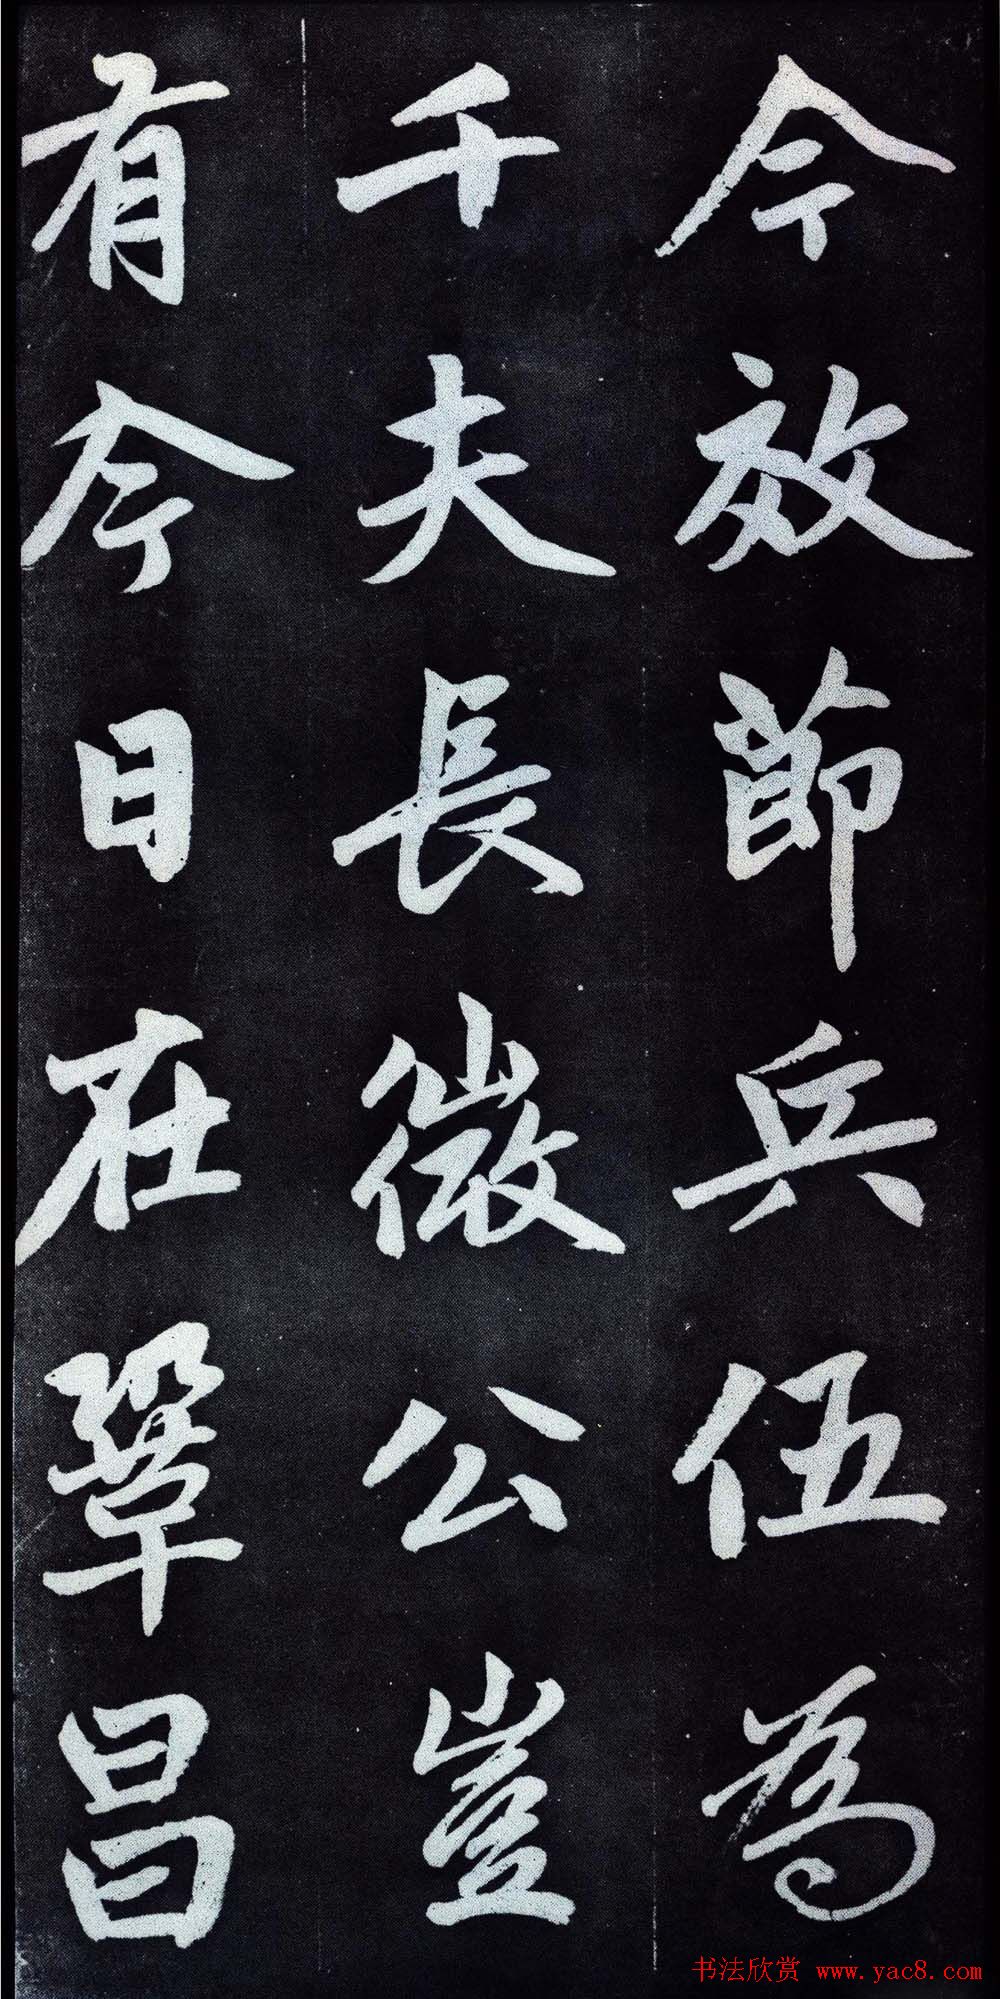 今效節兵伍為
千夫長微公豈
有今日在鞏昌
书法欣赏 www.yac8.com